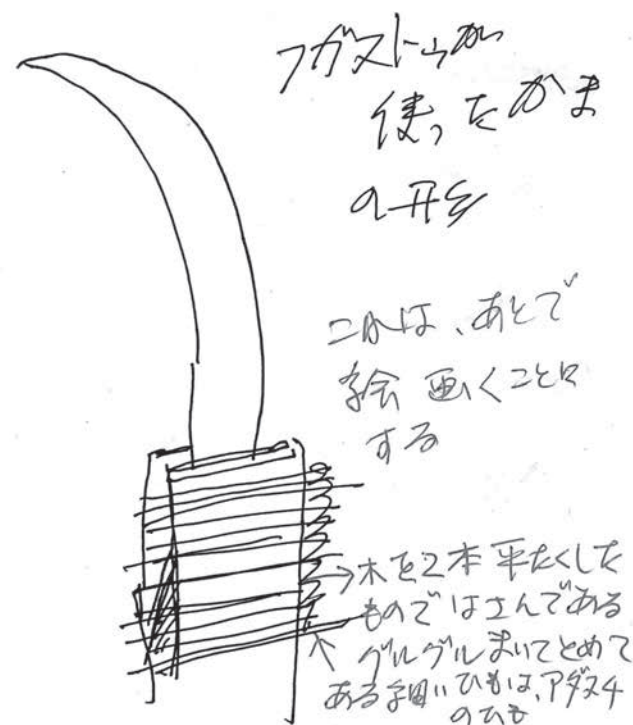 フガストゥが
使ったかま
の形
これは、あとで
絵画くことに
する
木を2本平たくした
ものではさんである
グルグルまいてとめて
ある細いひもは、アダヌチ
のひも